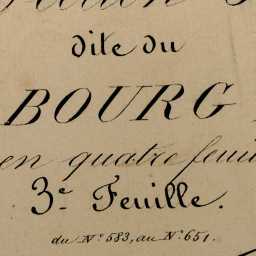 dite du
BOURG
en quatre feuil
3e Feuille.
du No 583, au No 651.